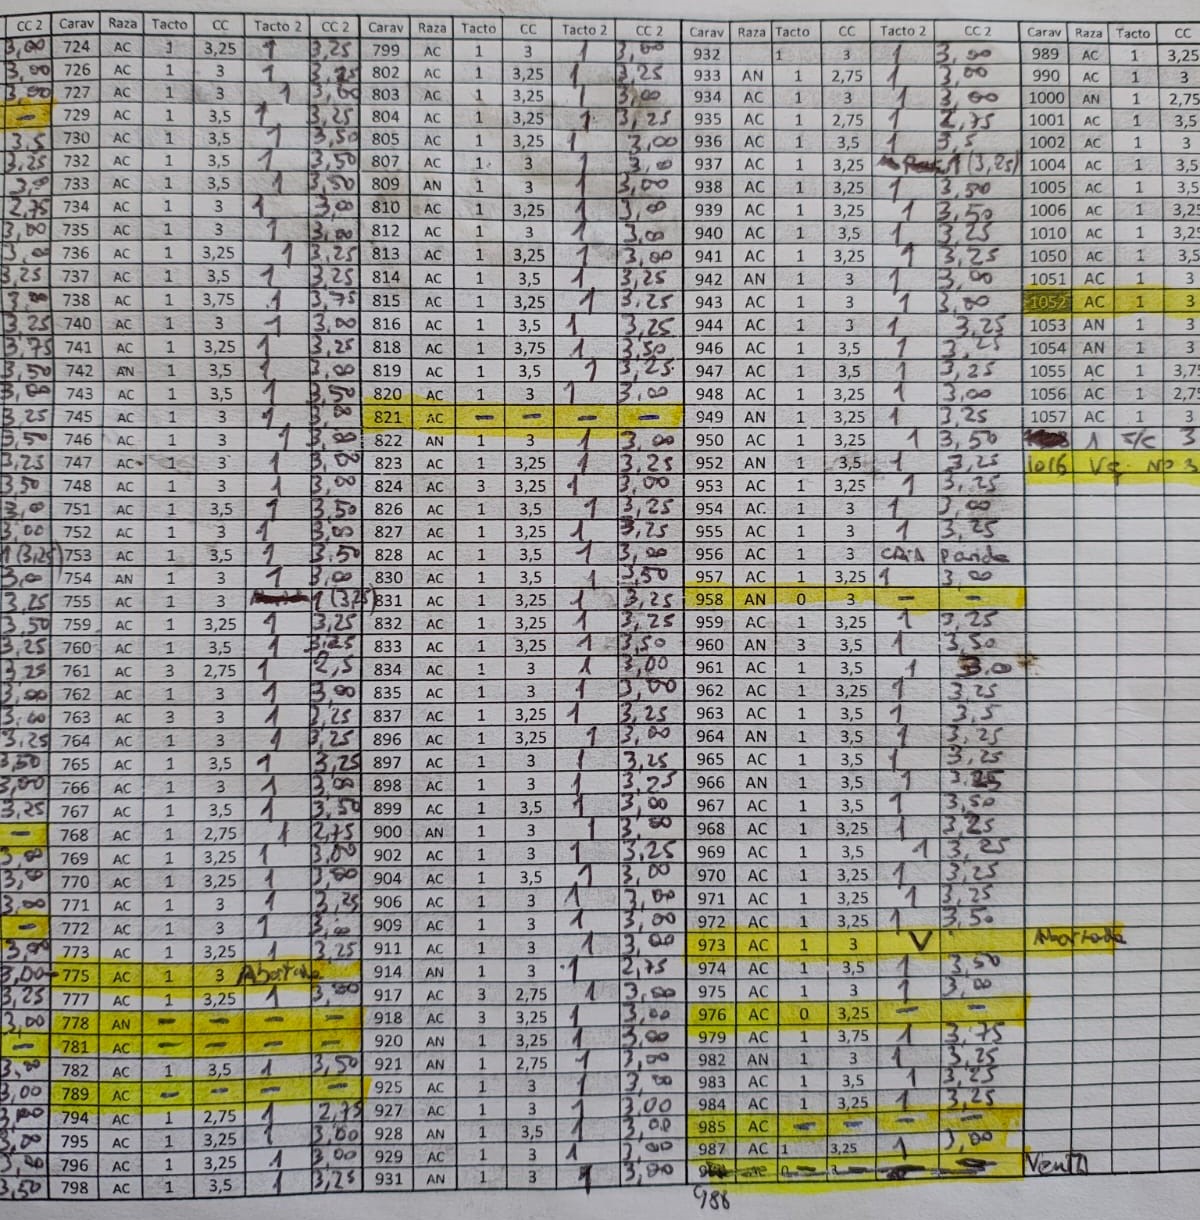 CC 2 Carav Raza Tacto CC Tacto 2 CC 2 Carav Raza Tacto CC Tacto 2 CC 2 Carav Raza Tacto CC Tacto 2 CC 2 Carav Raza Tacto CC
3,00 724 AC 1 3,25 1 3,25 799 AC 1 3 1 3,00 932 1 3 1 3,00 989 AC 1 3,25
3,00 726 AC 1 3 1 3,25 802 AC 1 3,25 1 3,25 933 AN 1 2,75 1 3,00 990 AC 1 3
3,00 727 AC 1 3 1 3,00 803 AC 1 3,25 1 3,00 934 AC 1 3 1 3,00 1000 AN 1 2,75
- 729 AC 1 3,5 1 3,25 804 AC 1 3,25 1 3,25 935 AC 1 2,75 1 2,75 1001 AC 1 3,5
3,5 730 AC 1 3,5 1 3,50 805 AC 1 3,25 1 3,00 936 AC 1 3,5 1 3,5 1002 AC 1 3
3,25 732 AC 1 3,5 1 3,50 807 AC 1 3 1 3,00 937 AC 1 3,25 1 (3,25) 1004 AC 1 3,5
3,00 733 AC 1 3,5 1 3,50 809 AN 1 3 1 3,00 938 AC 1 3,25 1 3,50 1005 AC 1 3,5
2,75 734 AC 1 3 1 3,00 810 AC 1 3,25 1 3,00 939 AC 1 3,25 1 3,50 1006 AC 1 3,25
3,00 735 AC 1 3 1 3,00 812 AC 1 3 1 3,00 940 AC 1 3,5 1 3,25 1010 AC 1 3,25
3,00 736 AC 1 3,25 1 3,25 813 AC 1 3,25 1 3,00 941 AC 1 3,25 1 3,25 1050 AC 1 3,5
3,25 737 AC 1 3,5 1 3,25 814 AC 1 3,5 1 3,25 942 AN 1 3 1 3,00 1051 AC 1 3
3,00 738 AC 1 3,75 1 3,75 815 AC 1 3,25 1 3,25 943 AC 1 3 1 3,00 1052 AC 1 3
3,25 740 AC 1 3 1 3,00 816 AC 1 3,5 1 3,25 944 AC 1 3 1 3,25 1053 AN 1 3
3,75 741 AC 1 3,25 1 3,25 818 AC 1 3,75 1 3,50 946 AC 1 3,5 1 3,25 1054 AN 1 3
3,50 742 AN 1 3,5 1 3,00 819 AC 1 3,5 1 3,25 947 AC 1 3,5 1 3,25 1055 AC 1 3,75
3,00 743 AC 1 3,5 1 3,50 820 AC 1 3 1 3,00 948 AC 1 3,25 1 3,00 1056 AC 1 2,75
3,25 745 AC 1 3 1 3,00 821 AC - - - - 949 AN 1 3,25 1 3,25 1057 AC 1 3
3,50 746 AC 1 3 1 3,00 822 AN 1 3 1 3,00 950 AC 1 3,25 1 3,50 1 S/C 3
3,25 747 AC 1 3 1 3,00 823 AC 1 3,25 1 3,25 952 AN 1 3,5 1 3,25 1016 Vq. No 3
3,50 748 AC 1 3 1 3,00 824 AC 3 3,25 1 3,00 953 AC 1 3,25 1 3,25
3,00 751 AC 1 3,5 1 3,50 826 AC 1 3,5 1 3,25 954 AC 1 3 1 3,00
3,00 752 AC 1 3 1 3,00 827 AC 1 3,25 1 3,25 955 AC 1 3 1 3,25
1 (3,25) 753 AC 1 3,5 1 3,50 828 AC 1 3,5 1 3,00 956 AC 1 3 CAIA Parida
3,00 754 AN 1 3 1 3,00 830 AC 1 3,5 1 3,50 957 AC 1 3,25 1 3,00
3,25 755 AC 1 3 1 (3,25) 831 AC 1 3,25 1 3,25 958 AN 0 3 - -
3,50 759 AC 1 3,25 1 3,25 832 AC 1 3,25 1 3,25 959 AC 1 3,25 1 3,25
3,25 760 AC 1 3,5 1 3,25 833 AC 1 3,25 1 3,50 960 AN 3 3,5 1 3,50
3,25 761 AC 3 2,75 1 2,5 834 AC 1 3 1 3,00 961 AC 1 3,5 1 3,00
3,00 762 AC 1 3 1 3,00 835 AC 1 3 1 3,00 962 AC 1 3,25 1 3,25
3,00 763 AC 3 3 1 3,25 837 AC 1 3,25 1 3,25 963 AC 1 3,5 1 3,5
3,25 764 AC 1 3 1 3,25 896 AC 1 3,25 1 3,00 964 AN 1 3,5 1 3,25
3,50 765 AC 1 3,5 1 3,25 897 AC 1 3 1 3,25 965 AC 1 3,5 1 3,25
3,00 766 AC 1 3 1 3,00 898 AC 1 3 1 3,25 966 AN 1 3,5 1 3,25
3,25 767 AC 1 3,5 1 3,50 899 AC 1 3,5 1 3,00 967 AC 1 3,5 1 3,50
- 768 AC 1 2,75 1 2,75 900 AN 1 3 1 3,00 968 AC 1 3,25 1 3,25
3,00 769 AC 1 3,25 1 3,00 902 AC 1 3 1 3,25 969 AC 1 3,5 1 3,25
3,00 770 AC 1 3,25 1 3,00 904 AC 1 3,5 1 3,00 970 AC 1 3,25 1 3,25
3,00 771 AC 1 3 1 3,25 906 AC 1 3 1 3,00 971 AC 1 3,25 1 3,25
- 772 AC 1 3 1 3,00 909 AC 1 3 1 3,00 972 AC 1 3,25 1 3,50
3,00 773 AC 1 3,25 1 3,25 911 AC 1 3 1 3,00 973 AC 1 3 V Abortada
3,00 775 AC 1 3 Abortada 914 AN 1 3 1 2,75 974 AC 1 3,5 1 3,50
3,25 777 AC 1 3,25 1 3,00 917 AC 3 2,75 1 3,00 975 AC 1 3 1 3,00
3,00 778 AN - - - - 918 AC 3 3,25 1 3,00 976 AC 0 3,25 - -
- 781 AC - - - - 920 AN 1 3,25 1 3,00 979 AC 1 3,75 1 3,75
3,00 782 AC 1 3,5 1 3,50 921 AN 1 2,75 1 3,00 982 AN 1 3 1 3,25
3,00 789 AC - - - - 925 AC 1 3 1 3,00 983 AC 1 3,5 1 3,25
3,00 794 AC 1 2,75 1 2,75 927 AC 1 3 1 3,00 984 AC 1 3,25 1 3,25
3,00 795 AC 1 3,25 1 3,00 928 AN 1 3,5 1 3,00 985 AC - - - -
3,00 796 AC 1 3,25 1 3,00 929 AC 1 3 1 3,00 987 AC 1 3,25 1 3,00
3,50 798 AC 1 3,5 1 3,25 931 AN 1 3 1 3,00 - - Venta
988